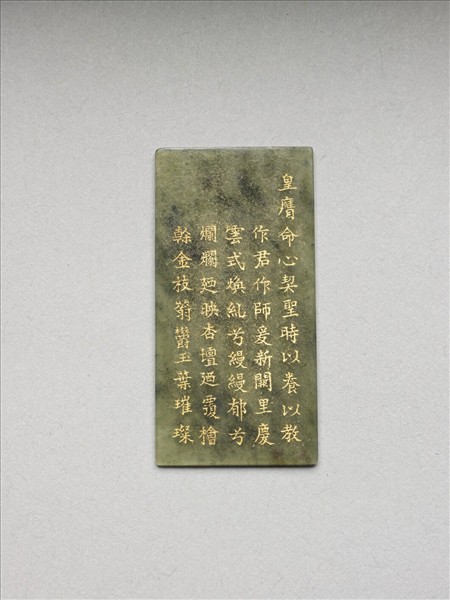 皇膺命心契聖時以養以教
作君作師爰新闕里慶
雲式煥糺兮縵縵郁兮
爛爛廻映杏壇覆檜
榦金枝蓊鬱玉葉璀璨